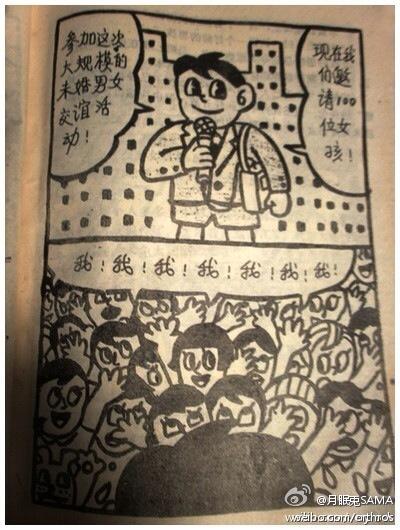 现在我
们邀
请100
位女
孩！
参加这次
大规模的
未婚男女
交谊活
动！
我！我！我！我！我！我！我！
@月眠兔SAMA
weibo.com/orthros